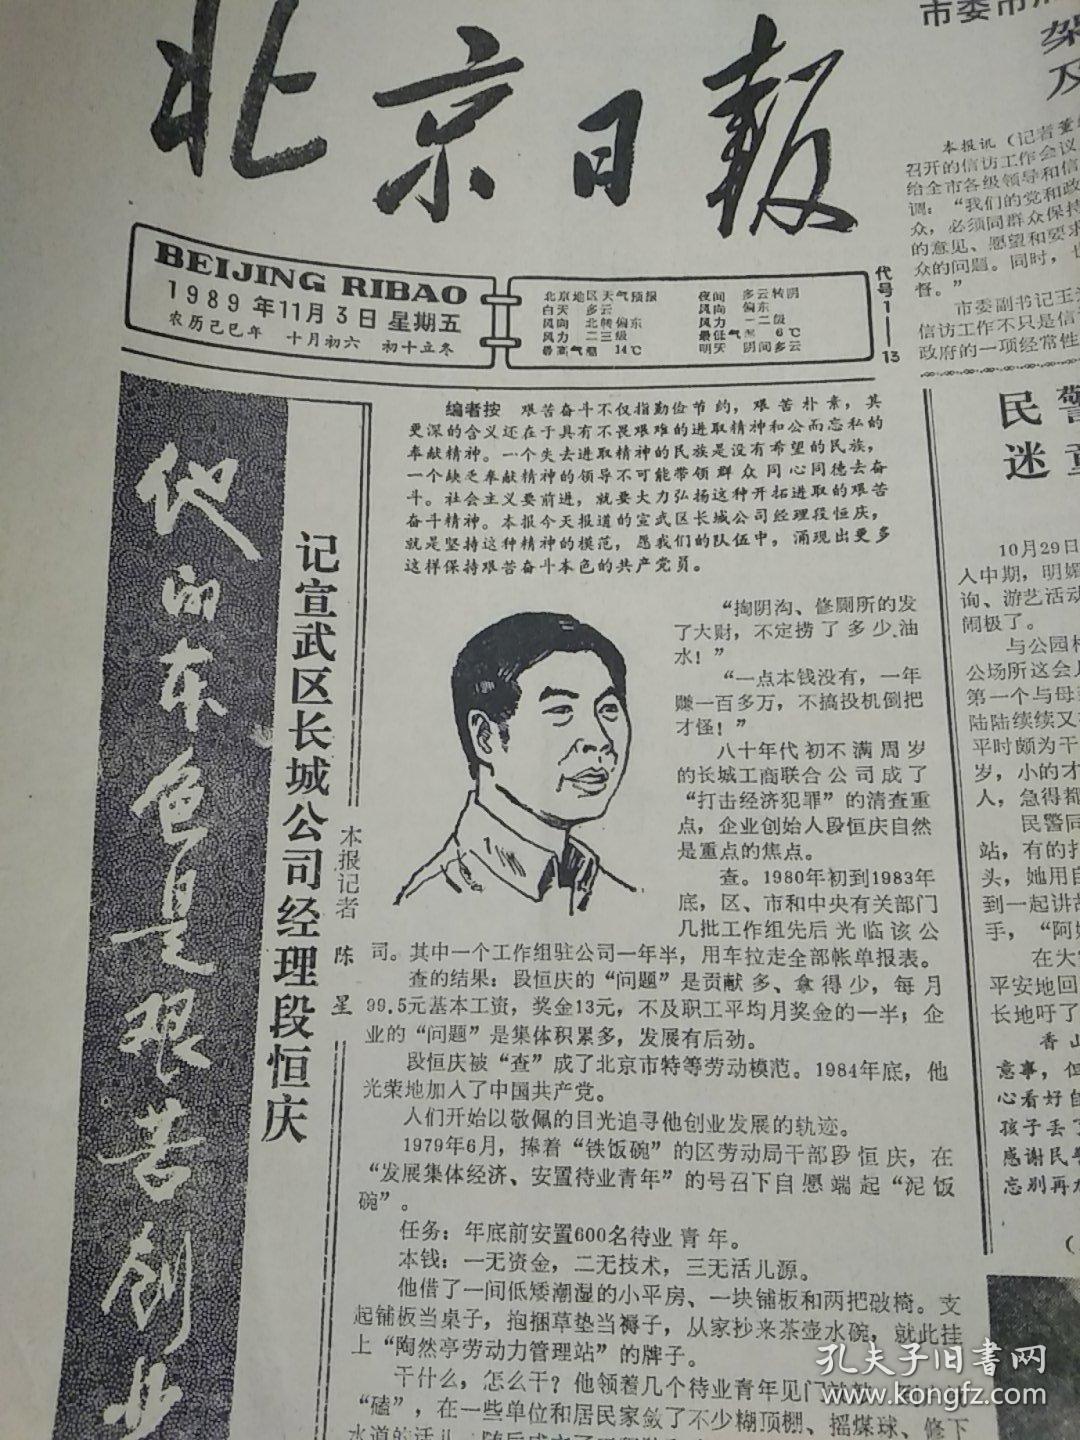 北京日报
BEIJING RIBAO
1989年11月3日 星期五
农历己巳年 十月初六 初十立冬
北京地区天气预报
白天 多云
风向 北转偏东
风力 二三级
最高气温 14℃
夜间 多云转阴
风向 偏东
风力 一二级
最低气温 6℃
明天 阴间多云
代号1—13
他的本色是艰苦创业
记宣武区长城公司经理段恒庆
本报记者 陈星
编者按 艰苦奋斗不仅指勤俭节约，艰苦朴素，其
更深的含义还在于具有不畏艰难的进取精神和公而忘私的
奉献精神。一个失去进取精神的民族是没有希望的民族，
一个缺乏奉献精神的领导不可能带领群众同心同德去奋
斗。社会主义要前进，就要大力弘扬这种开拓进取的艰苦
奋斗精神。本报今天报道的宣武区长城公司经理段恒庆，
就是坚持这种精神的模范，愿我们的队伍中，涌现出更多
这样保持艰苦奋斗本色的共产党员。
“掏阴沟、修厕所的发
了大财，不定捞了多少油
水！”
“一点本钱没有，一年
赚一百多万，不搞投机倒把
才怪！”
八十年代初不满周岁
的长城工商联合公司成了
“打击经济犯罪”的清查重
点，企业创始人段恒庆自然
是重点的焦点。
查。1980年初到1983年
底，区、市和中央有关部门
几批工作组先后光临该公
司。其中一个工作组驻公司一年半，用车拉走全部帐单报表。
查的结果：段恒庆的“问题”是贡献多、拿得少，每月
99.5元基本工资，奖金13元，不及职工平均月奖金的一半；企
业的“问题”是集体积累多，发展有后劲。
段恒庆被“查”成了北京市特等劳动模范。1984年底，他
光荣地加入了中国共产党。
人们开始以敬佩的目光追寻他创业发展的轨迹。
1979年6月，捧着“铁饭碗”的区劳动局干部段恒庆，在
“发展集体经济、安置待业青年”的号召下自愿端起“泥饭
碗”。
任务：年底前安置600名待业青年。
本钱：一无资金，二无技术，三无活儿源。
他借了一间低矮潮湿的小平房、一块铺板和两把破椅。支
起铺板当桌子，抱捆草垫当褥子，从家抄来茶壶水碗，就此挂
上“陶然亭劳动力管理站”的牌子。
干什么，怎么干？他领着几个待业青年见门
“磕”，在一些单位和居民家敛了不少糊顶棚、摇煤球、修下
水道的活儿
市委市
架
及
本报讯（记者
召开的信访工作会议
给全市各级领导和信
调：“我们的党和政
众，必须同群众保持
的意见、愿望和要求
众的问题。同时，
督。”
市委副书记王
信访工作不只是信
政府的一项经常性
民警
迷童
10月29日
人中期，明媚
询、游艺活动
闹极了。
与公园
公场所这会儿
第一个与母
陆陆续续又
平时颇为干
岁，小的才
人，急得都
民警同
站，有的
头，她用自
到一起讲故
手，“阿
在大
平安地回
长地吁了
香山
意事，但
心看好自
孩子丢了
感谢民警
忘别再
孔夫子旧书网
www.kongfz.com